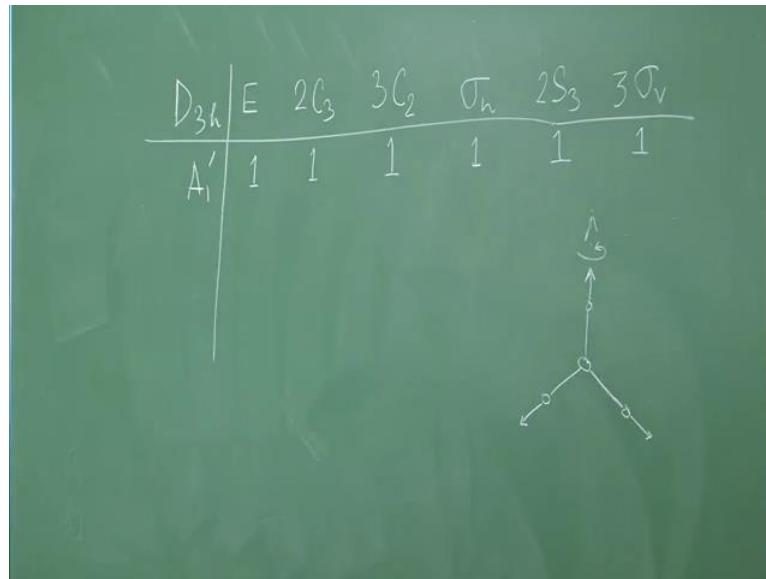 D₃ₕ E 2C₃ 3C₂ σₕ 2S₃ 3σᵥ
A₁′ 1 1 1 1 1 1